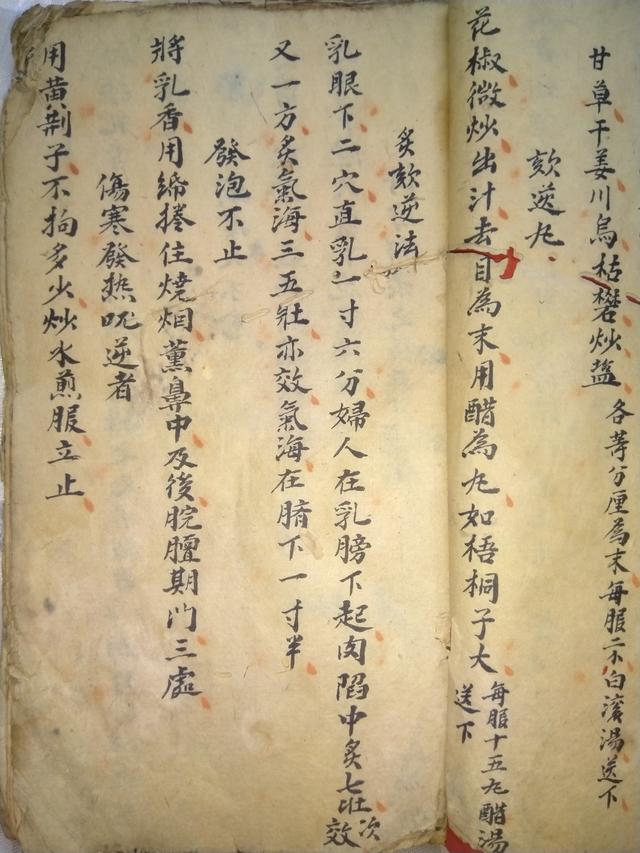 甘草干姜川烏枯礬炒盐各等分厘為末每服二不白滚湯送下
欬逆丸
花椒微炒出汁去目為末用醋為丸如梧桐子大每服十五丸醋湯送下
炙欬逆法
乳眼下二穴直乳一寸六分婦人在乳膀下起肉陷中炙七壯次效
又一方炙氣海三五壯亦效氣海在臍下一寸半
發泡不止
將乳香用綿捲住燒烟薰鼻中及後脘膻期门三處
傷寒發熱呃逆者
用黄荆子不拘多少炒水煎服立止